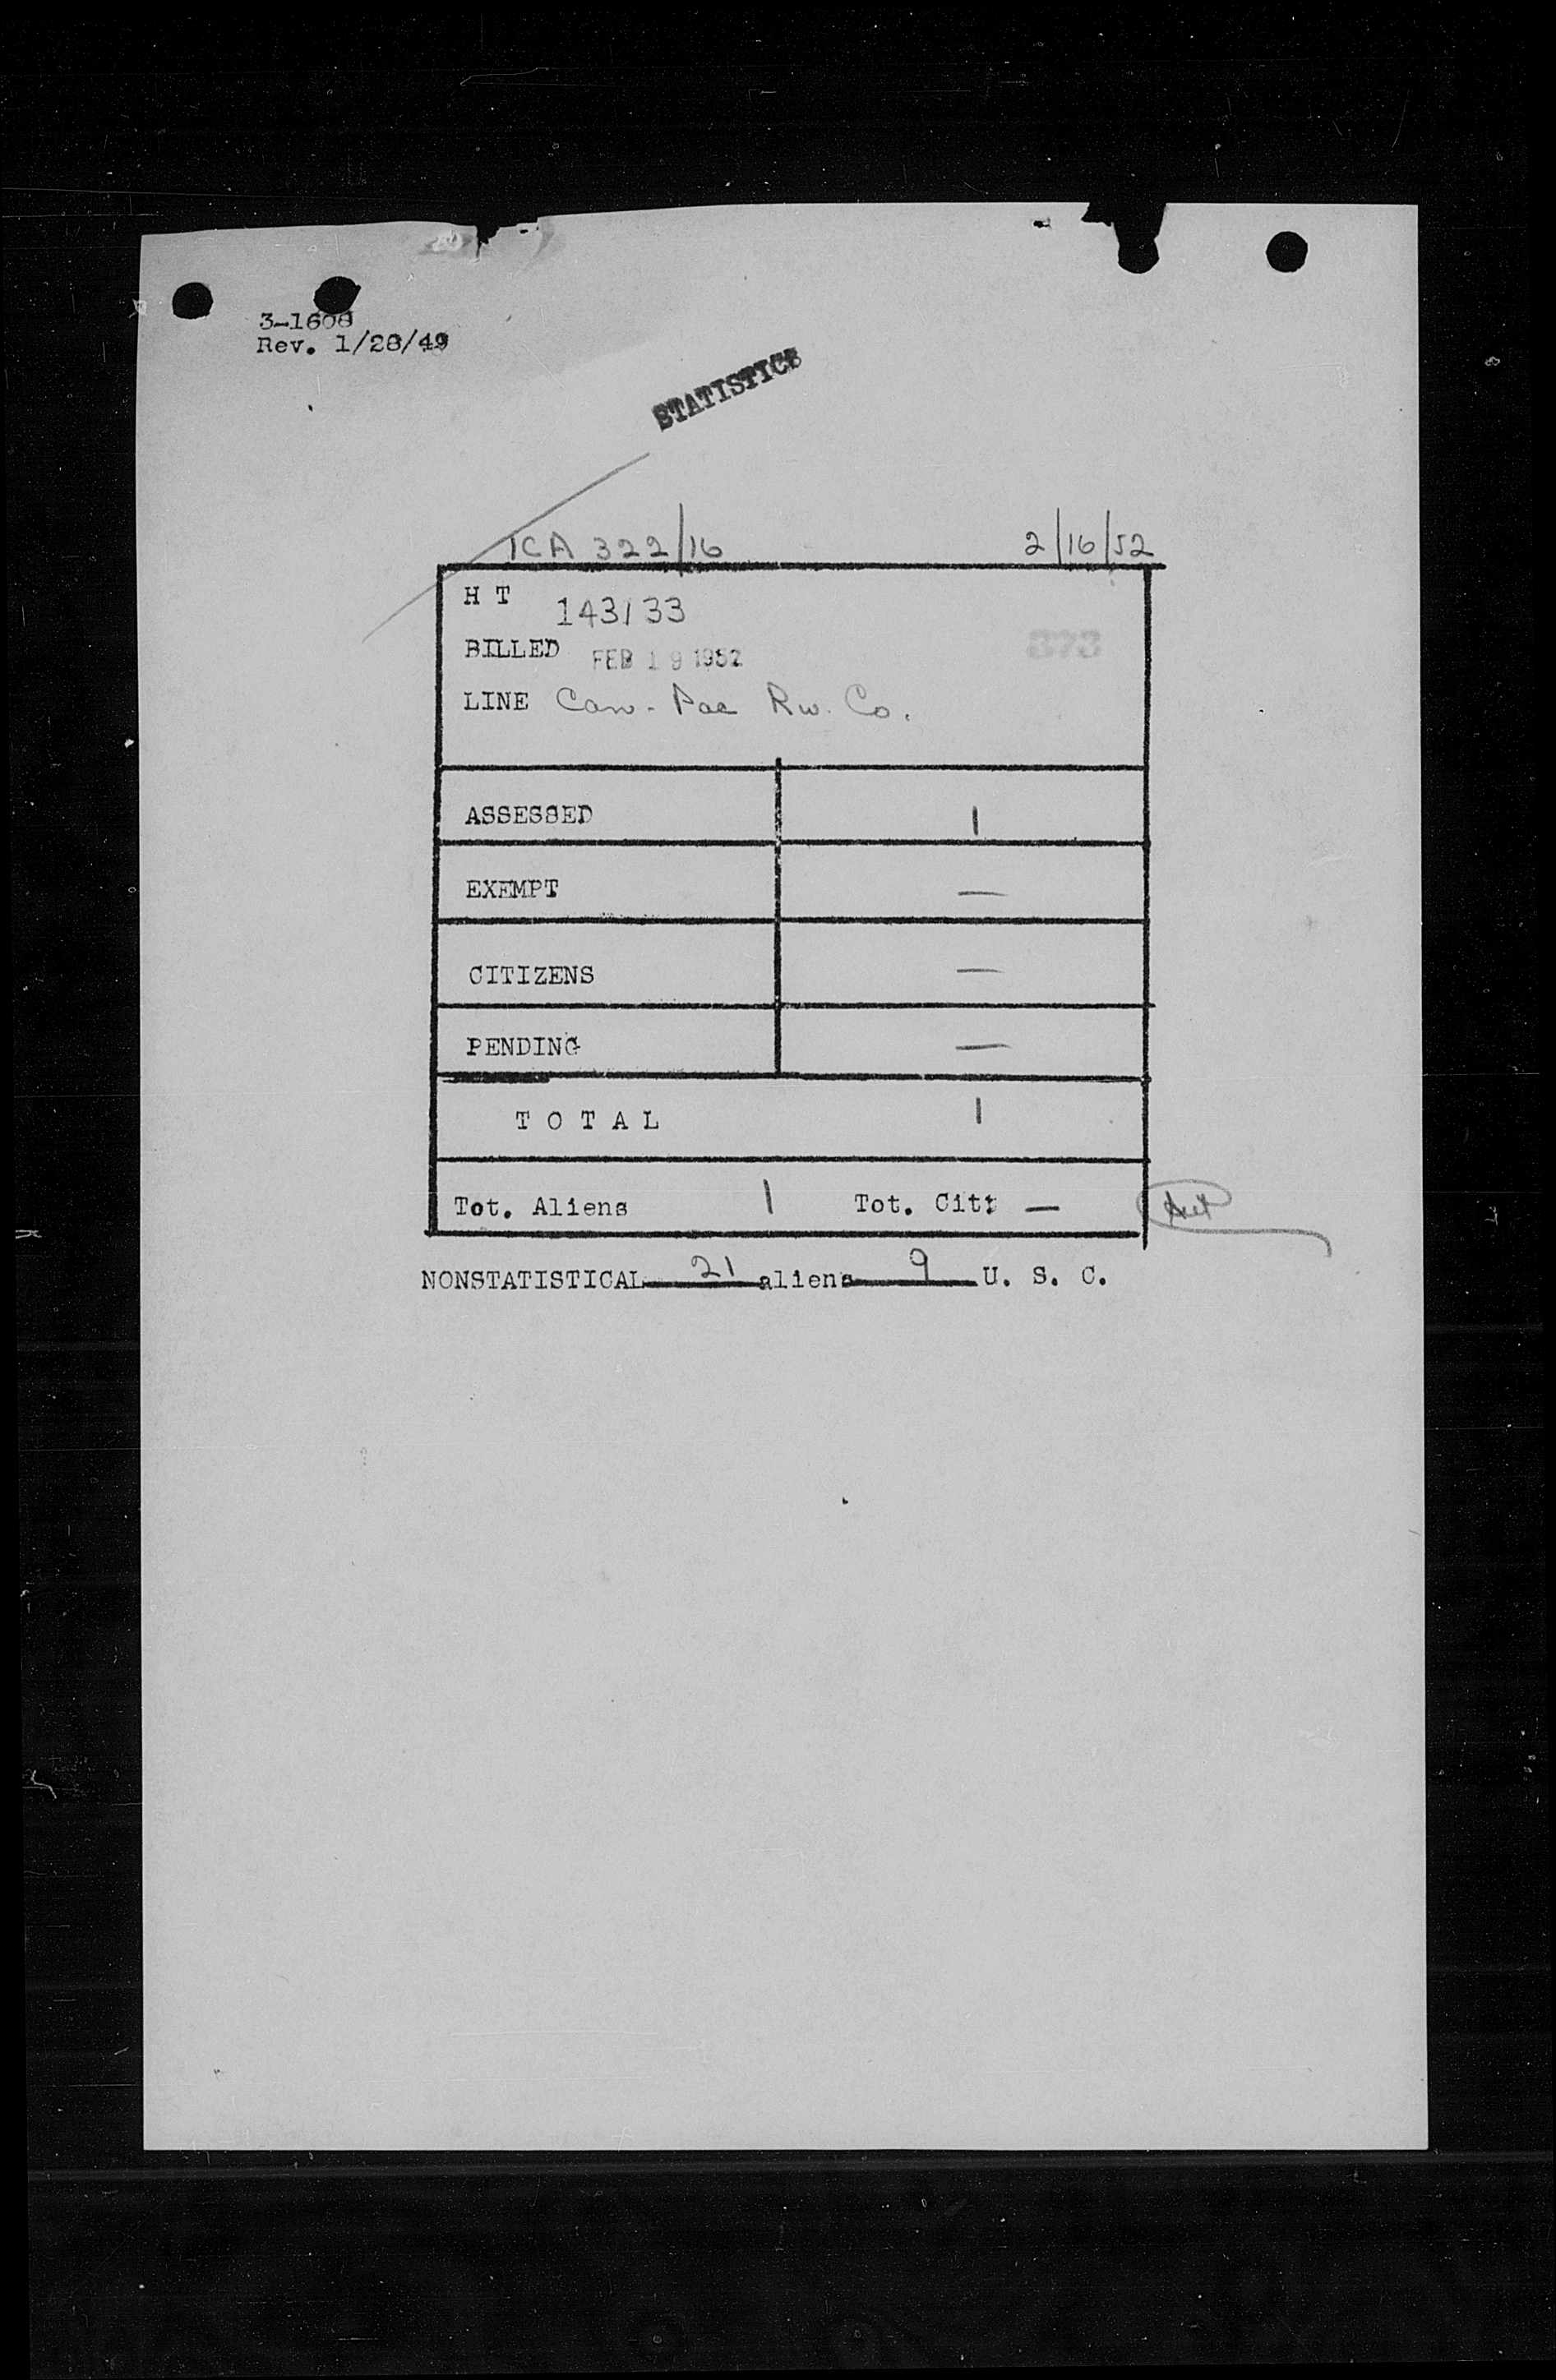 3-1608
Rev. 1/28/49
STATISTICS
TCA 322/16 2/16/52
H T 143133
BILLED FEB 19 1952 373
LINE Can-Pac Rw. Co.
ASSESSED 1
EXEMPT —
CITIZENS —
PENDING —
T O T A L 1
Tot. Aliens 1 Tot. Citz —
NONSTATISTICAL 21 aliens 9 U. S. C.